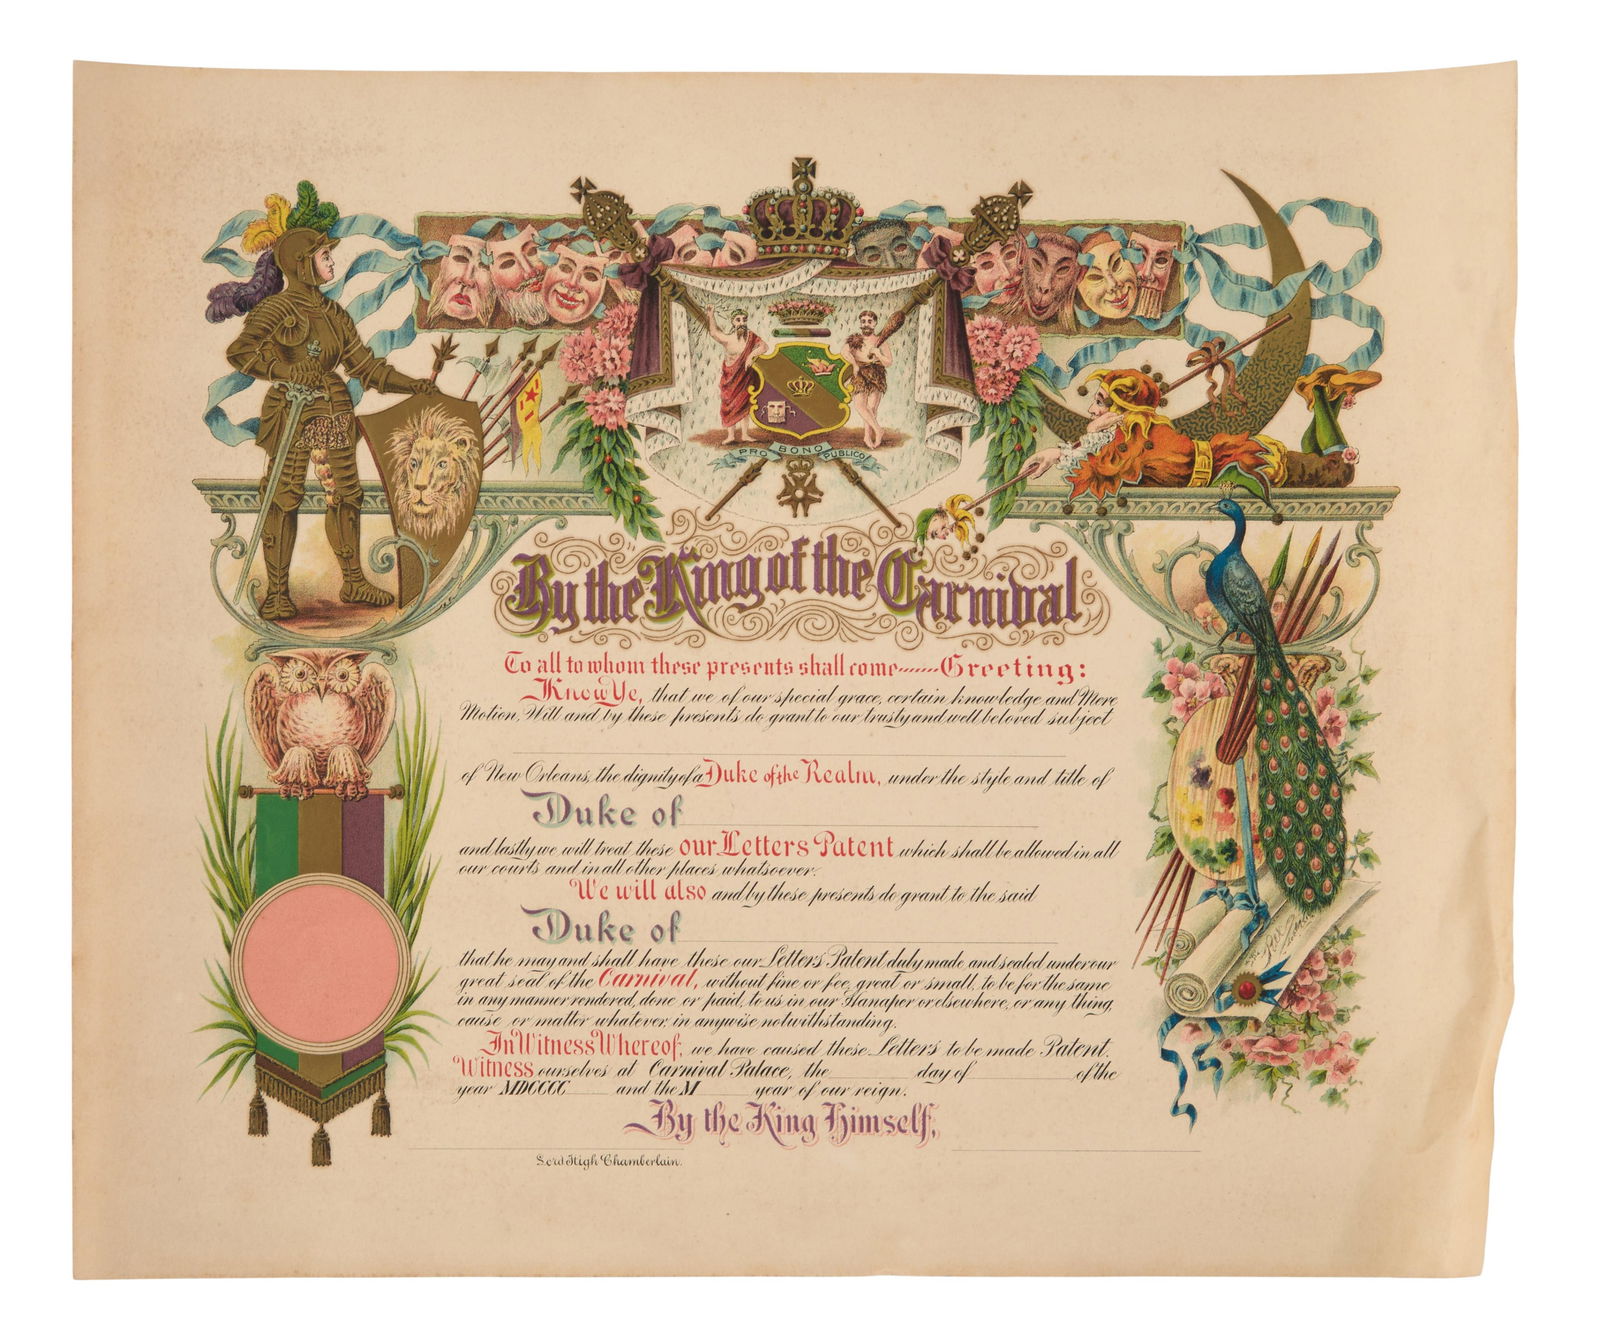 PRO BONO PUBLICO
By the King of the Carnival
To all to whom these presents shall come........Greeting:
Know Ye, that we of our special grace, certain knowledge and Mere
Motion, Will and by these presents do grant to our trusty and well beloved subject
of New Orleans, the dignity of a Duke of the Realm, under the style and title of
Duke of
and lastly we will treat these our Letters Patent which shall be allowed in all
our courts and in all other places whatsoever.
We will also and by these presents do grant to the said
Duke of
that he may and shall have these our Letters Patent duly made and sealed under our
great seal of the Carnival, without fine or fee, great or small, to be for the same
in any manner rendered, done or paid, to us in our Hanaper or elsewhere, or any thing,
cause or matter whatever in anywise notwithstanding.
In Witness Whereof, we have caused these Letters to be made Patent.
Witness ourselves at Carnival Palace, the day of of the
year MDCCCC and the M year of our reign.
By the King Himself,
Lord High Chamberlain.
Rex